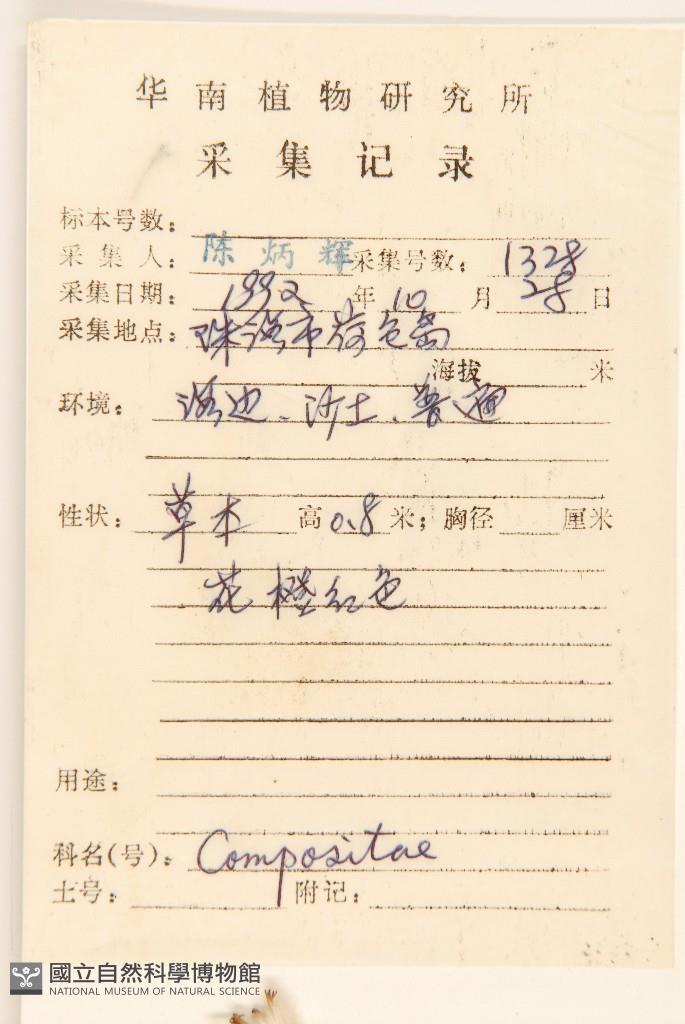 华南植物研究所
采集记录
标本号数：
采集人：陈炳辉 采集号数：1328
采集日期：1992年10月28日
采集地点：珠海市荷包岛
海拔 米
环境：路边、沙土、普遍
性状：草本 高0.8米；胸径 厘米
花橙红色
用途：
科名(号)：Compositae
土号： 附记：
國立自然科學博物館
NATIONAL MUSEUM OF NATURAL SCIENCE